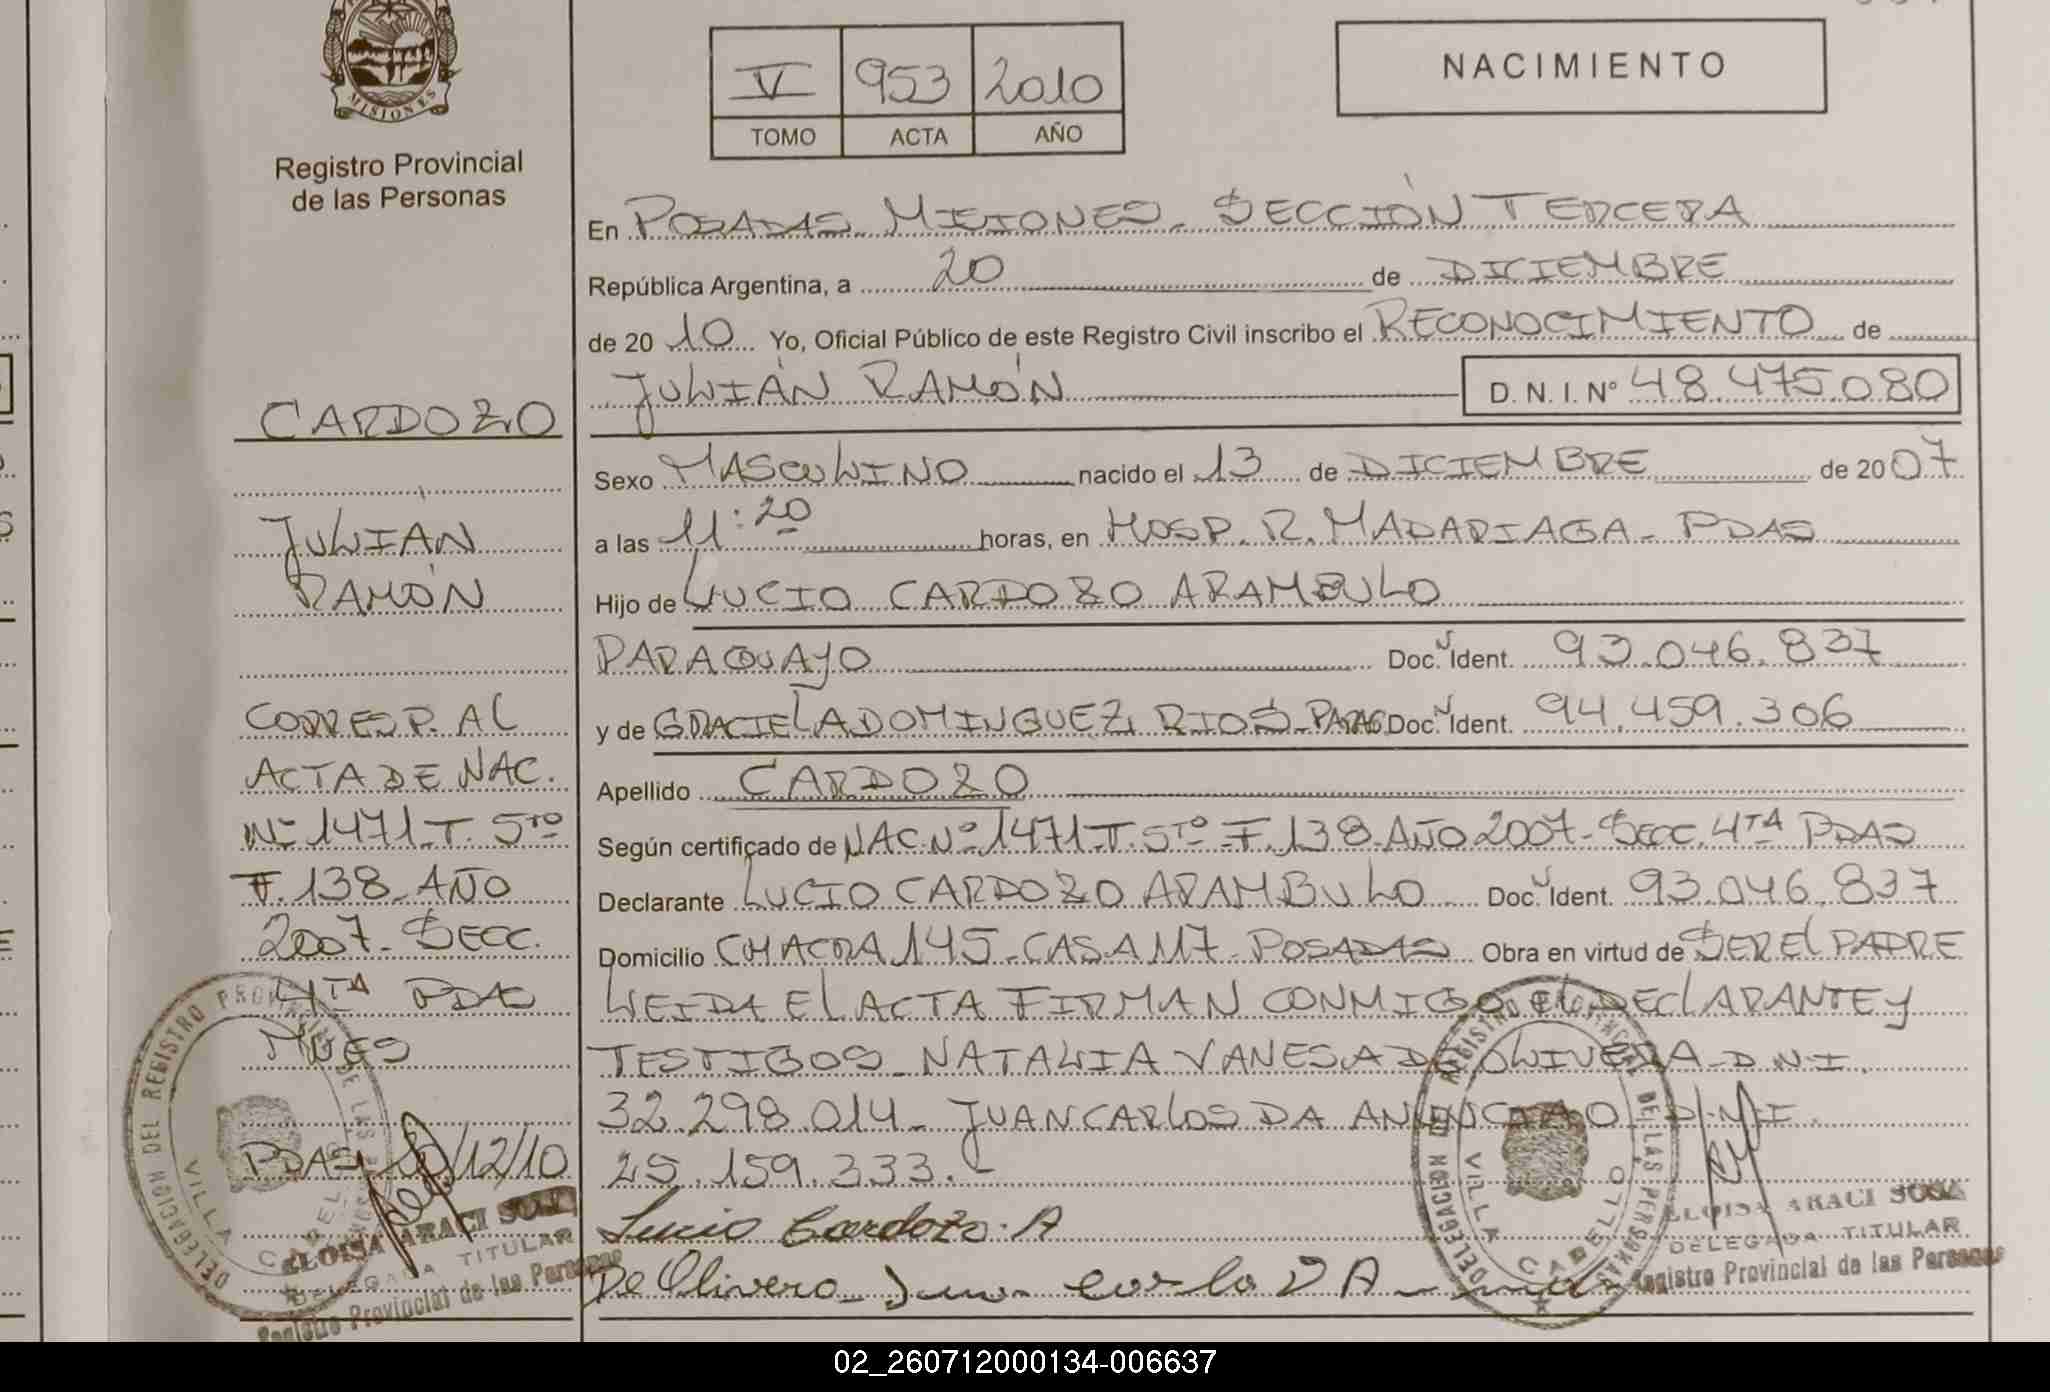 MISIONES
Registro Provincial
de las Personas
CARDOZO
JULIÁN
RAMÓN
CORRESP. AL
ACTA DE NAC.
Nº 1471-T. 5TO
F. 138-AÑO
2007-SECC.
4TA PDAS
MNES
PDAS 20/12/10
ELOISA ARACI SOSA
DELEGADA TITULAR
Registro Provincial de las Personas
DELEGACION DEL REGISTRO PROVINCIAL DE LAS PERSONAS
VILLA CABELLO
V 953 2010
TOMO ACTA AÑO
NACIMIENTO
En POSADAS-MISIONES-SECCIÓN TERCERA
República Argentina, a 20 de DICIEMBRE
de 2010 Yo, Oficial Público de este Registro Civil inscribo el RECONOCIMIENTO de
JULIÁN RAMÓN D. N. I. Nº 48.475.080
Sexo MASCULINO nacido el 13 de DICIEMBRE de 2007
a las 11:20 horas, en HOSP. R. MADARIAGA-PDAS
Hijo de LUCIO CARDOZO ARAMBULO
PARAGUAYO Doc. Ident. 93.046.837
y de GRACIELA DOMINGUEZ RIOS-PARAG Doc. Ident. 94.459.306
Apellido CARDOZO
Según certificado de NAC Nº 1471-T. 5TO-F. 138-AÑO 2007-SECC. 4TA PDAS
Declarante LUCIO CARDOZO ARAMBULO Doc. Ident. 93.046.837
Domicilio CHACRA 145-CASA 117-POSADAS Obra en virtud de SER EL PADRE
LEIDA EL ACTA FIRMAN CONMIGO EL DECLARANTE Y
TESTIGOS-NATALIA VANESA DE OLIVERA-D.N.I.
32.298.014-JUAN CARLOS DA ANUNCIAO D.N.I.
25.159.333.
Lucio Cardozo. A
De Olivera- Juan carlo D A
DELEGACION DEL REGISTRO PROVINCIAL DE LAS PERSONAS
VILLA CABELLO
ELOISA ARACI SOSA
DELEGADA TITULAR
Registro Provincial de las Personas
02_260712000134-006637